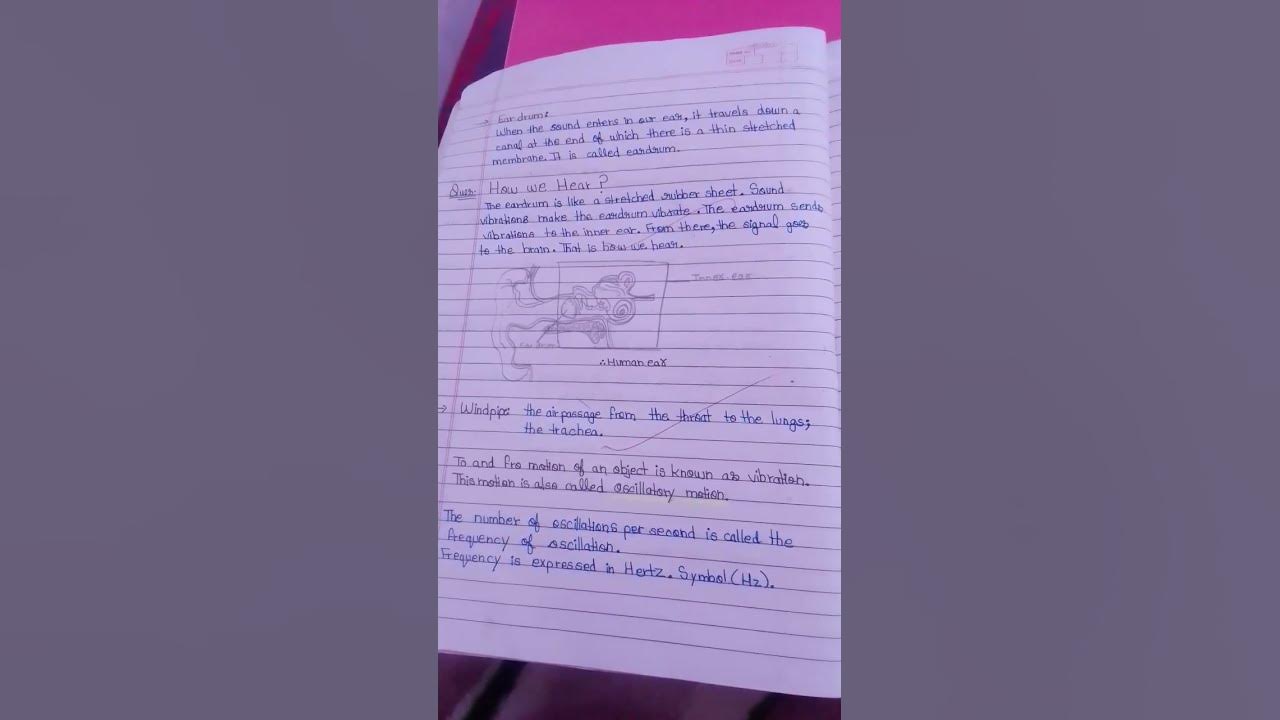 → Eardrum:
When the sound enters in our ear, it travels down a
canal at the end of which there is a thin stretched
membrane. It is called eardrum.
Ques: How we Hear?
The eardrum is like a stretched rubber sheet. Sound
vibrations make the eardrum vibrate. The eardrum sends
vibrations to the inner ear. From there, the signal goes
to the brain. That is how we hear.
Inner ear
Eardrum
∴ Human ear
→ Windpipe: the air passage from the throat to the lungs;
the trachea.
To and fro motion of an object is known as vibration.
This motion is also called oscillatory motion.
The number of oscillations per second is called the
frequency of oscillation.
Frequency is expressed in Hertz. Symbol (Hz).